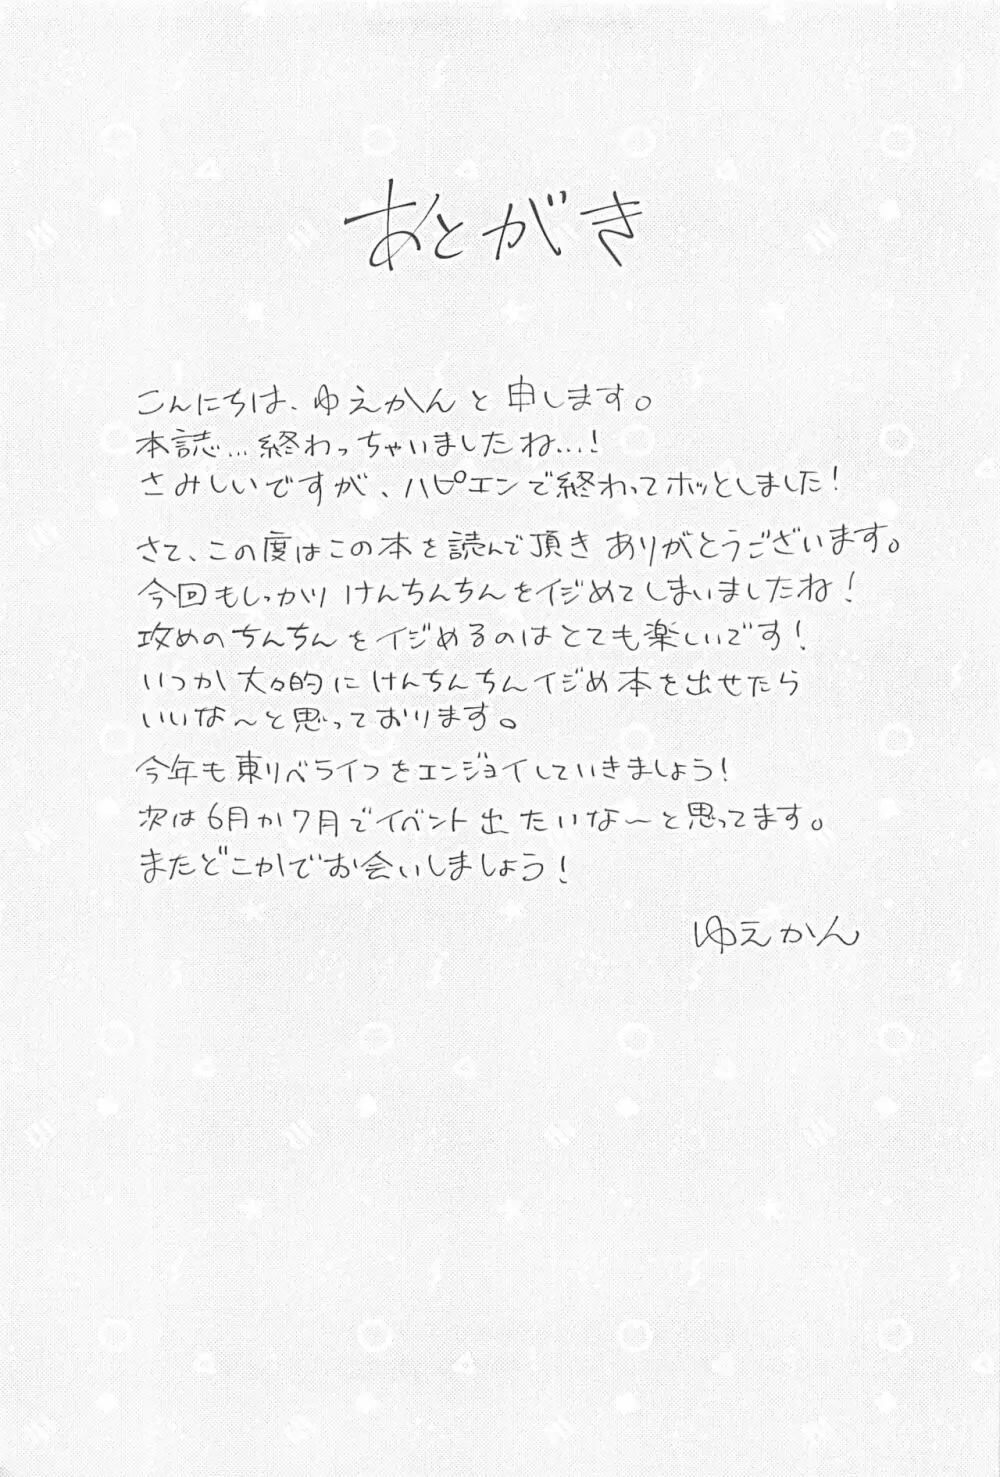 あとがき
こんにちは、ゆえかんと申します。
本誌…終わっちゃいましたね…!
さみしいですが、ハピエンで終わってホッとしました!
さて、この度はこの本を読んで頂きありがとうございます。
今回もしっかりけんちんちんをイジめてしまいましたね!
攻めのちんちんをイジめるのはとても楽しいです!
いつか大々的にけんちんちんイジめ本を出せたら
いいな〜と思っております。
今年も東リベライフをエンジョイしていきましょう!
次は6月か7月でイベント出たいな〜と思ってます。
またどこかでお会いしましょう!
ゆえかん